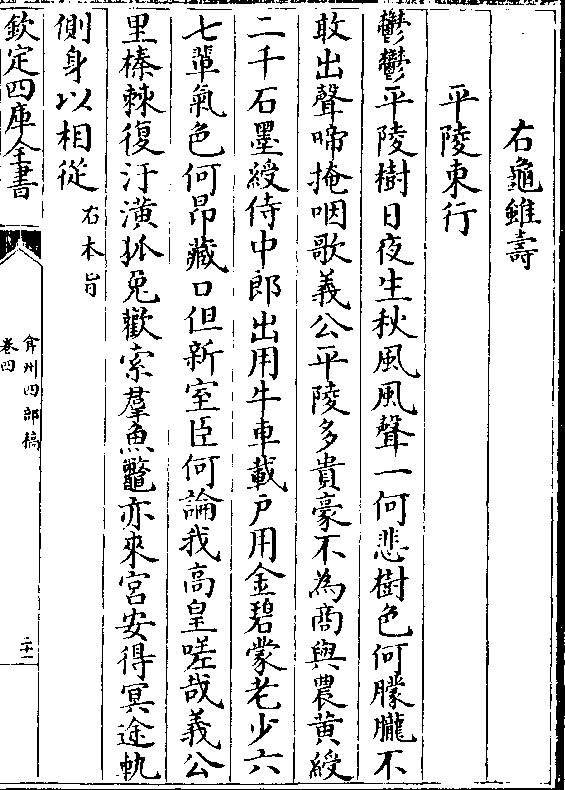 右龜雖壽
平陵東行
鬱鬱平陵樹日夜生秋風風聲一何悲樹色何朦朧不
敢出聲啼掩咽歌義公平陵多貴豪不為商與農黄綬
二千石墨綬侍中郎出用牛車載戸用金碧蒙老少六
七輩氣色何昂藏口但新室臣何論我高皇嗟哉義公
里榛棘復汙潢狐兔歡索羣魚鼈亦來宫安得冥途軌
側身以相從右本旨
欽定四庫全書
弇州四部稿
卷四
二十一